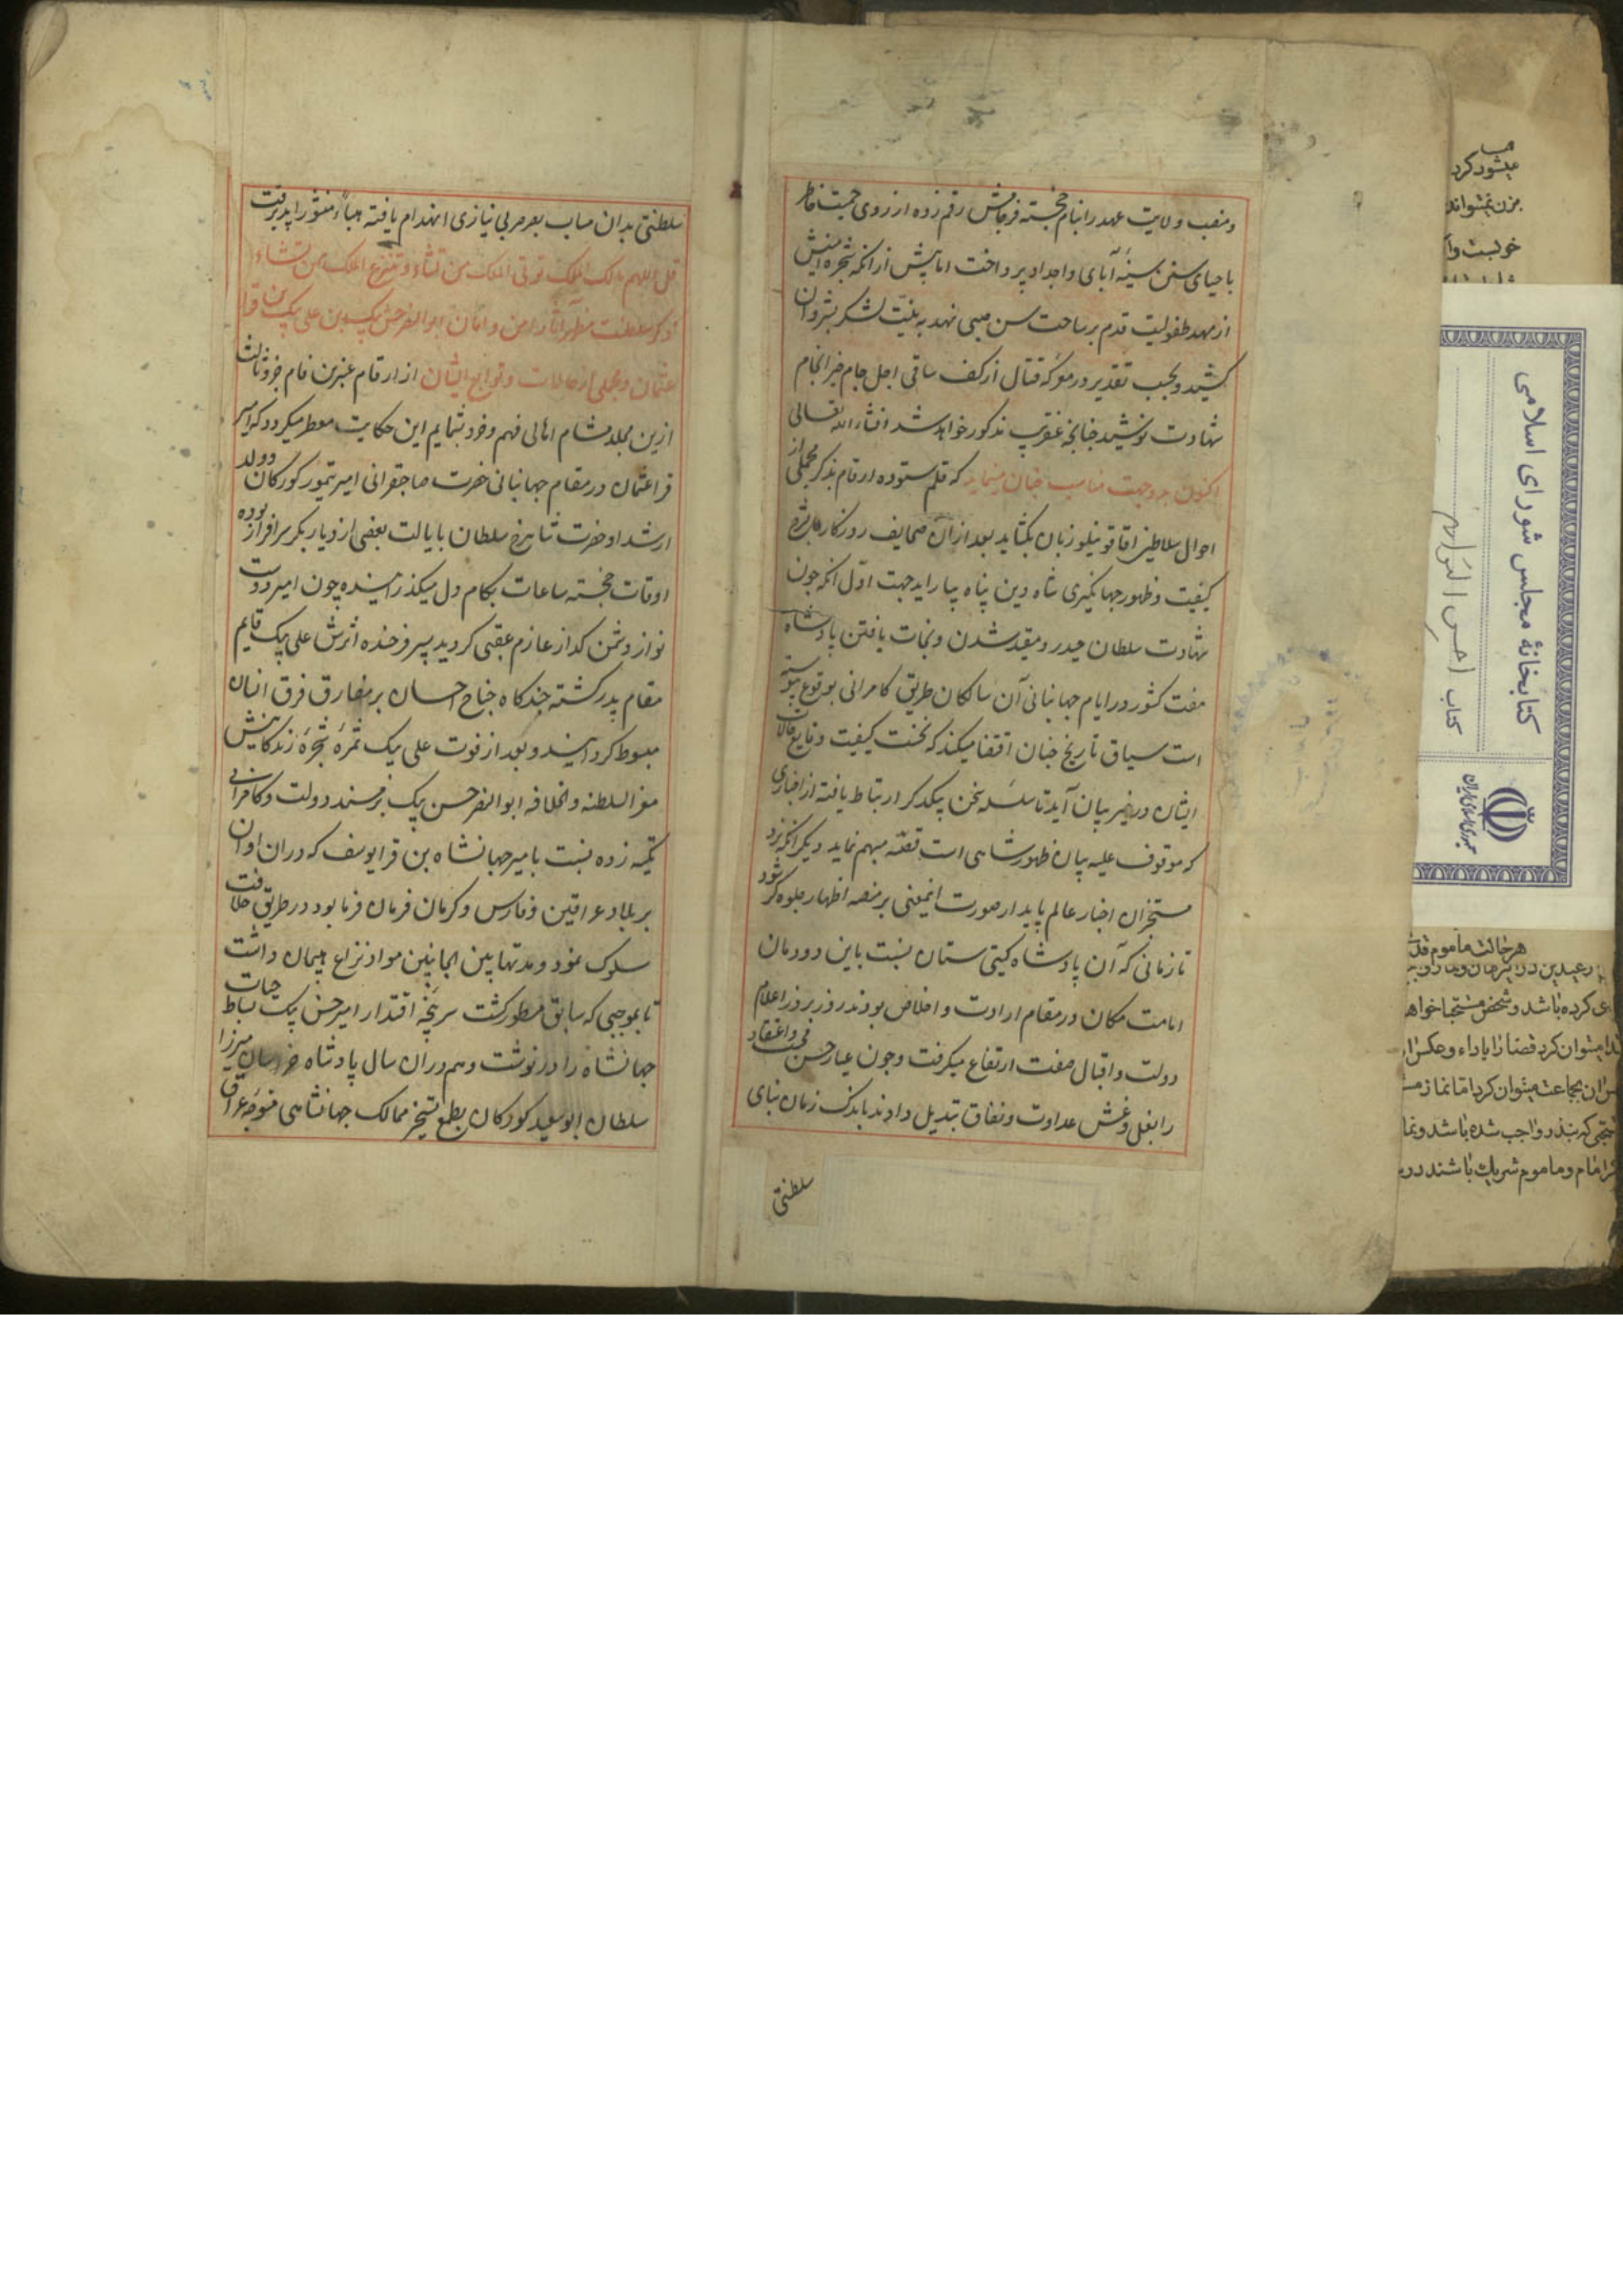 و منصب ولایت عهد را بنام خجسته فرجامش رقم زده از روی جمعیت خاطر
باحیای سنن سنیهٔ آبای و اجداد پرداخت اما پیش از انکه شجره
از مهد طفولیت قدم بر ساحت سن صبی نهد به نیت لشکر بشروان
کشید و بحسب تقدیر در معرکه قتال از کف ساقی اجل جام خیر انجام
شهادت نوشید چنانچه عنقریب مذکور خواهد شد انشاء الله تعالی
اکنون بدو جهت مناسب چنان مینماید که قلم ستوده ارقام بذکر مجملی از
احوال سلاطین اقاقوینلو زبان بکشاید بعد از آن صحایف روزکار را بشرح
کیفیت ظهور جهانکیری شاه دین پناه بیاراید جهت اول انکه چون
شهادت سلطان حیدر و مقید شدن و نجات یافتن پادشاه
هفت کشور در ایام جهانبانی آن سالکان طریق کامرانی بوقوع پیوسته
است سیاق تاریخ چنان اقتضا میکند که نخست کیفیت وقایع حالات
ایشان در حیز بیان آید تا سلسله سخن بیکدکر ارتباط یافته از اخباری
که موقوف علیه بیان ظهور شاهی است قصه مبهم نماید دیکر انکه نزد
مستخبران اخبار عالم پایدار صورت اینمعنی بر منصه اظهار جلوه کر شود
تا زمانی که آن پادشاه کیتی ستان نسبت باین دودمان
امامت مکان در مقام ارادت و اخلاص بودند روز بروز اعلام
دولت و اقبال صفت ارتفاع میکرفت و چون عیار حسن محبت و اعتقاد
را بغل و غش عداوت و نفاق تبدیل دادند باندک زمان بنای
سلطنتی
سلطنتی بدان مثاب بصرصر بی نیازی انهدام یافته هباءً منثورا پذیرفت
قل اللهم مالک الملک توتی الملک من تشاء و تنزع الملک ممن تشاء
ذکر سلطنت مظهر آثار امن و امان ابوالنصر حسن بیک بن علی بیک بن قرا
عثمان و مجملی از حالات و توابع ایشان از ارقام عنبرین فام جزو ثالث
ازین مجلد مشام اهالی فهم و خرد بشمایم این حکایت معطر میکردد که امیر
قرا عثمان در مقام جهانبانی حضرت صاحبقرانی امیر تیمور کورکان و ولد
ارشد او حضرت شاهرخ سلطان بایالت بعضی از دیاربکر سرافراز بوده
اوقات خجسته ساعات بکام دل میکذرانیده چون امیر دوست
نواز دشمن کداز عازم عقبی کردید پسر فرخنده اثرش علی بیک قایم
مقام پدر کشته چندکاه جناح احسان بر مفارق فرق انسان
مبسوط کردانید و بعد از فوت علی بیک ثمرهٔ شجرهٔ زندکانیش
معز السلطنه و الخلافه ابو النصر حسن بیک بر مسند دولت و کامرانی
تکیه زده نسبت بامیر جهانشاه بن قرا یوسف که دران اوان
بر بلاد عراقین و فارس و کرمان فرمان فرما بود در طریق خلافت
سلوک نمود و مدتها بین الجانبین مواد نزاع هیمان داشت
تا بموجبی که سابق مسطور کشت سرپنجه اقتدار امیر حسن بیک بساط حیات
جهانشاه را در نوشت و هم دران سال پادشاه خراسان میرزا
سلطان ابوسعید کورکان بطمع تسخیر ممالک جهانشاهی متوجه عراق
کتابخانهٔ مجلس شورای اسلامی
کتاب احسن التواریخ
جمهوری اسلامی ایران
میشود کرد
هر حالت ماموم
ی کرده باشد و شخص
میتوان کرد قضا را باداء و عکس
بجماعت میتوان کرد اما نماز
که بنذر واجب شده باشد و نماز
امام و ماموم شریک باشند در